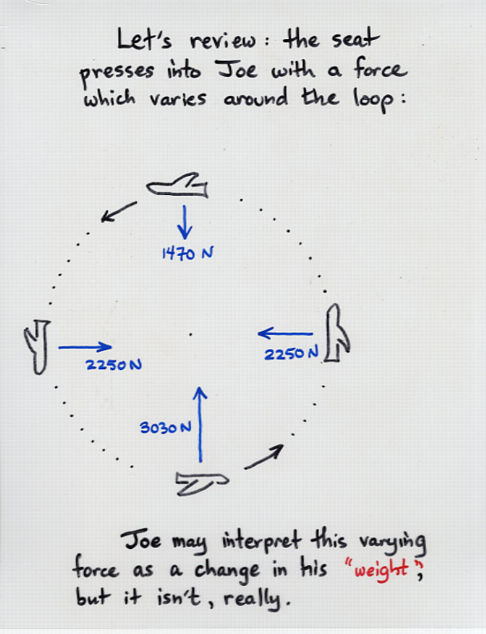 Let's review: the seat
presses into Joe with a force
which varies around the loop:
1470 N
2250 N
2250 N
3030 N
Joe may interpret this varying
force as a change in his "weight",
but it isn't, really.